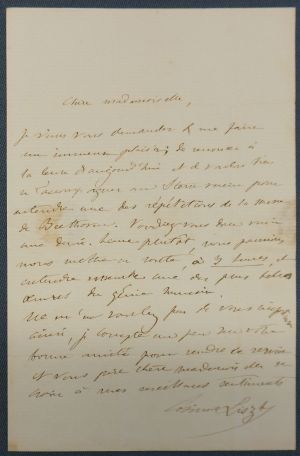 Chère mademoiselle,
Je viens vous demander de me faire
un immense plaisir, de renoncer à
la leçon d'aujourd'hui et de vouloir bien
m'accompagner au
entendre une des répétitions de la messe
de Beethoven. Voudriez vous donc venir
une demi heure plutôt, nous pourrions
nous mettre en route, à 3 heures, et
entendre ensemble une des plus belles
œuvres du génie humain.
Ne m'en voulez pas de vous
ainsi, je compte un peu sur votre
bonne amitié pour rendre ce service
et vous prie chère mademoiselle de
croire à mes meilleurs sentiments
Cosima Liszt